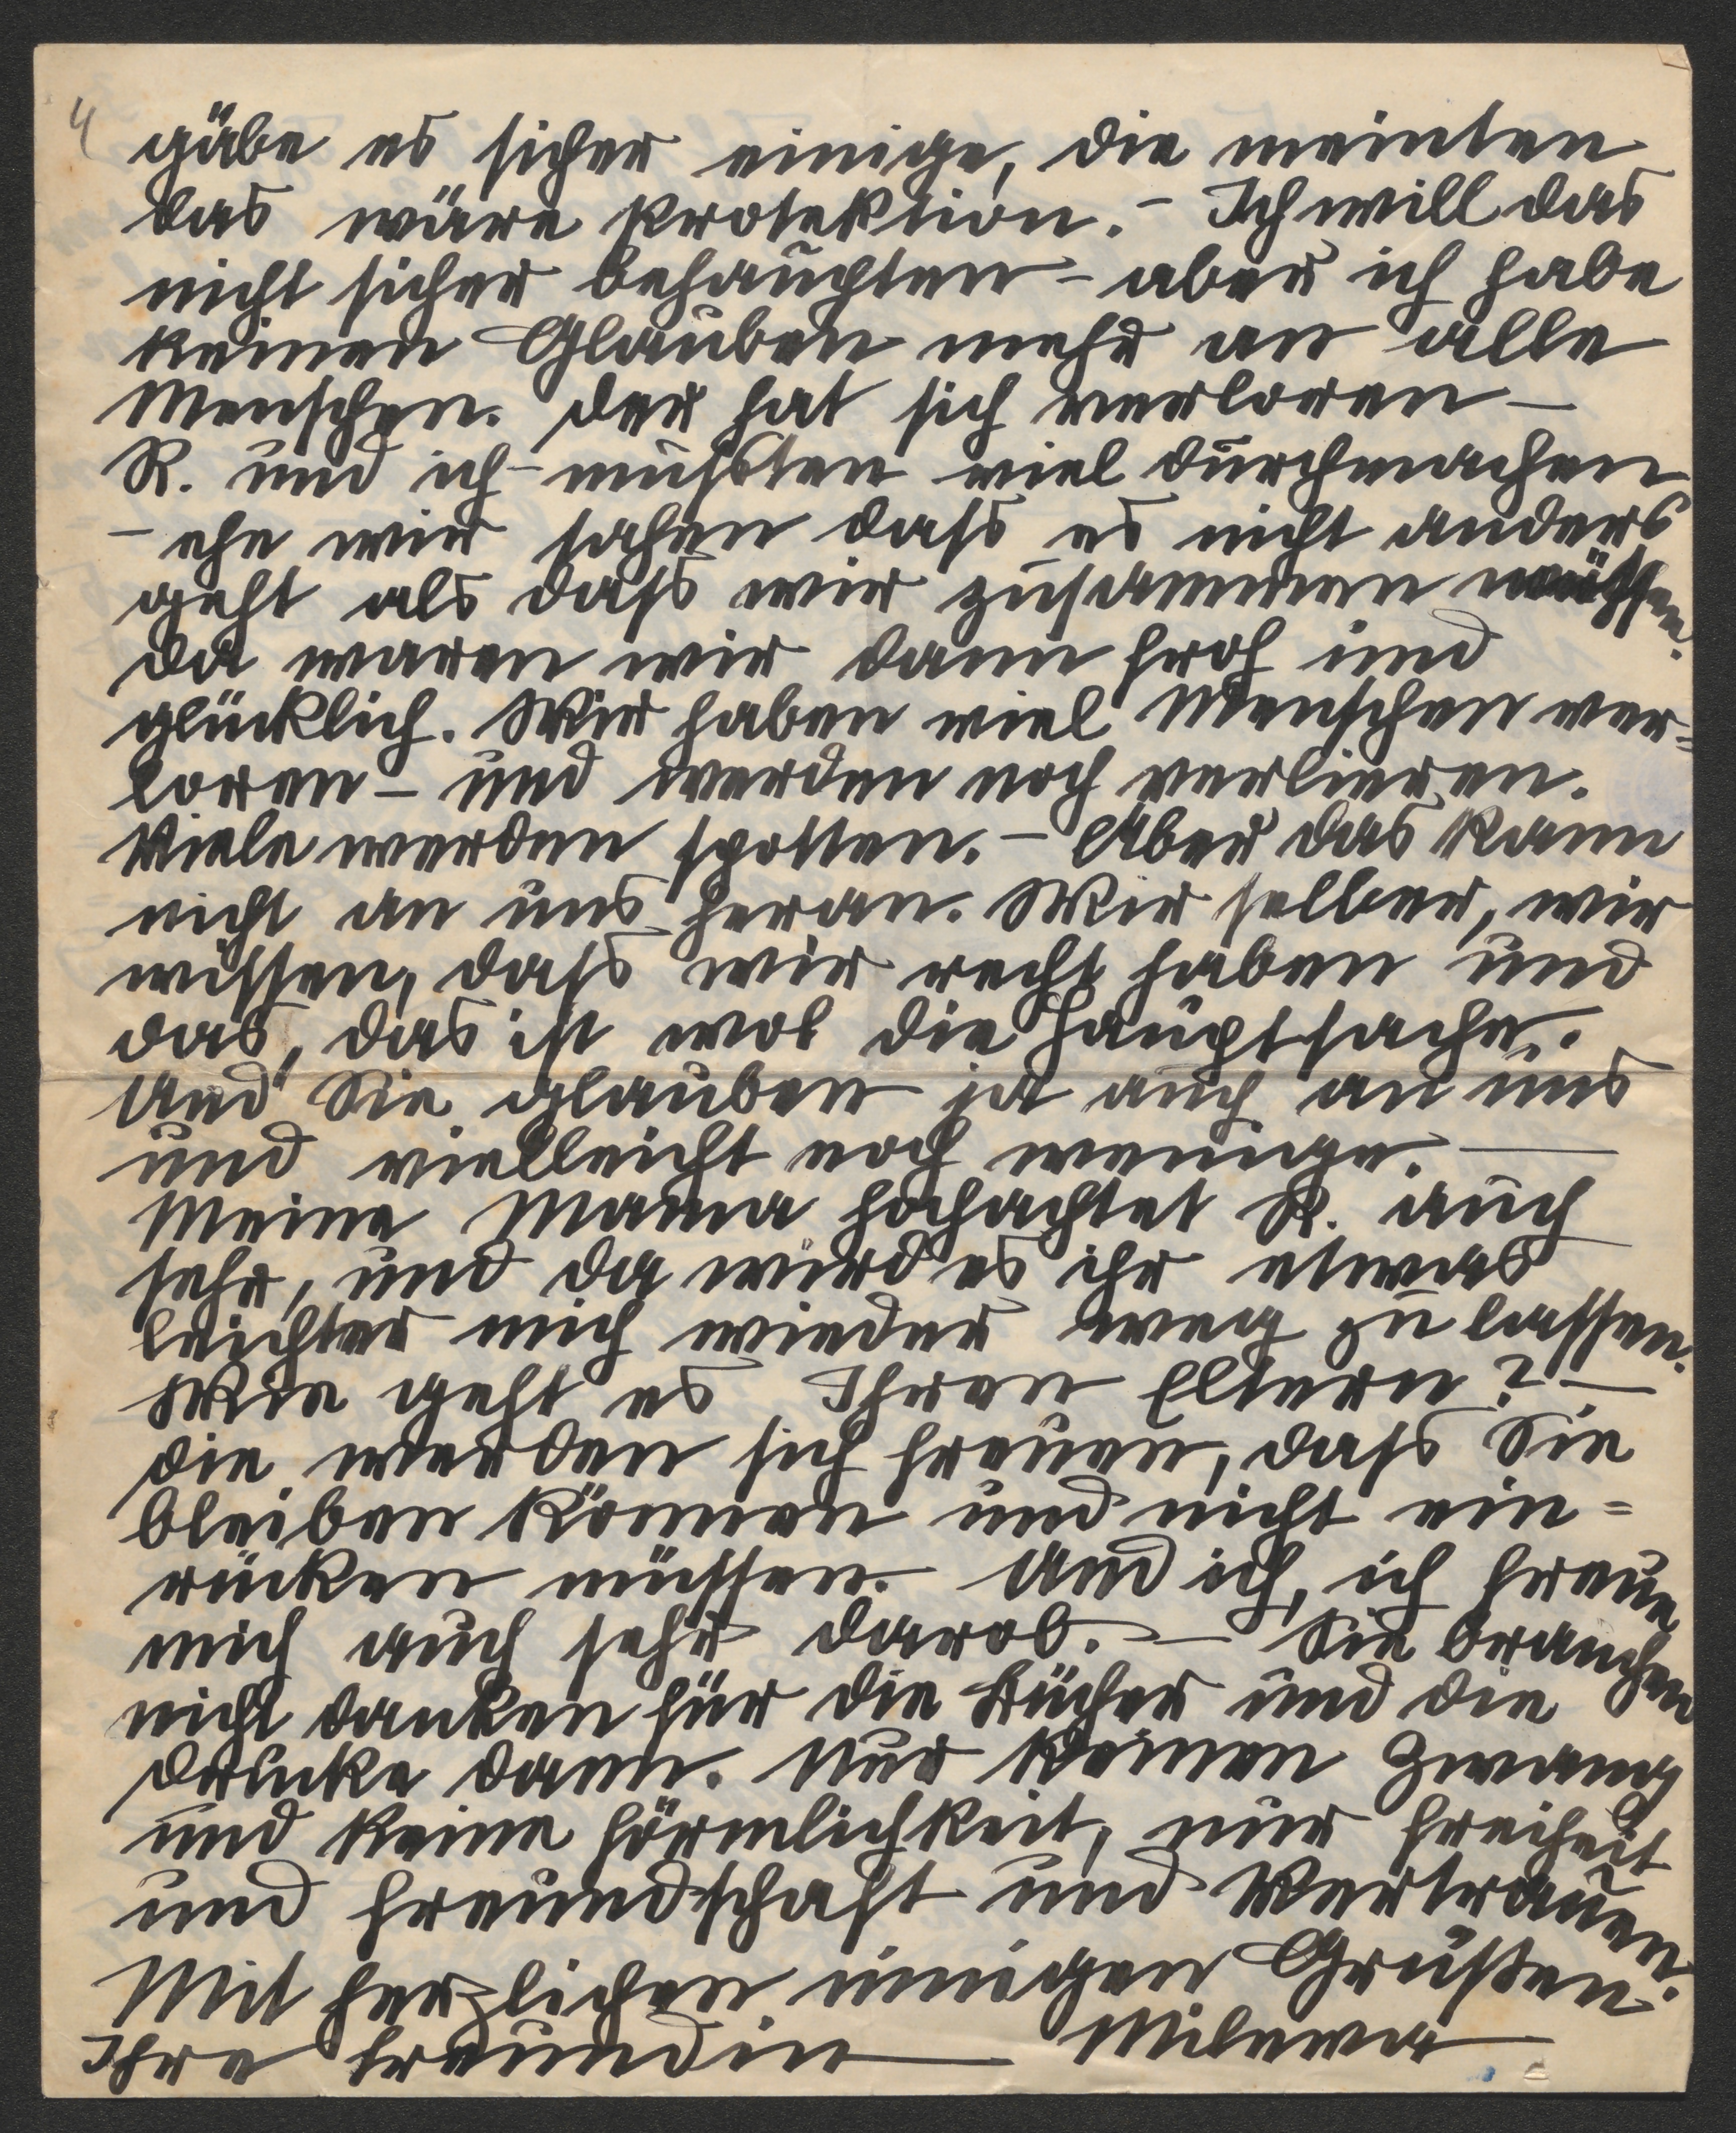 4
gäbe es sicher einige, die meinten
das wäre Protektion. – Ich will das
nicht sicher behaupten – aber ich habe
keinen Glauben mehr an alle
Menschen. der hat sich verloren –
R. und ich – mußten viel durchmachen
– ehe wir sahen dass es nicht anders
geht als dass wir zusammen müssen.
da waren wir dann froh und
glücklich. Wir haben viel Menschen ver=
loren – und werden noch verlieren.
Viele werden spotten. – Aber das kann
nicht an uns heran. Wir selber, wir
wissen, dass wir recht haben und
das, das ist wol die Hauptsache.
Und Sie glauben ja auch an uns
und vielleicht noch wenige. –
Meine Mama hochachtet R. auch
sehr, und da wird es ihr etwas
leichter mich wieder weg zu lassen.
Wie geht es Ihren Eltern? –
die werden sich freuen, dass Sie
bleiben können und nicht ein=
rücken müssen. Und ich, ich freue
mich auch sehr darob. – Sie brauchen
nicht danken für die Bücher und die
Drucke dann. Nur keinen Zwang
und keine Förmlichkeit, nur Freiheit
und Freundschaft und Vertrauen.
Mit herzlichen innigen Grüßen.
Ihre Freundin – Milewa